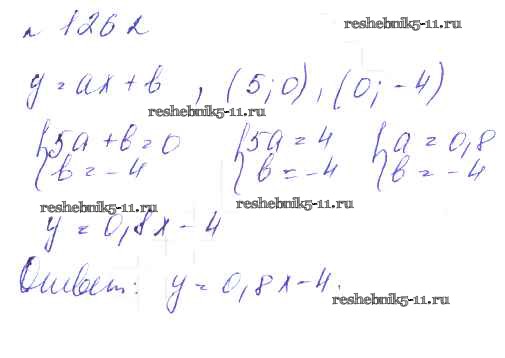 № 1262
reshebnik5-11.ru
y = ax + b , (5; 0), (0; -4)
reshebnik5-11.ru
{5a + b = 0 {5a = 4 {a = 0,8
{b = -4 {b = -4 {b = -4
reshebnik5-11.ru reshebnik5-11.ru
y = 0,8x - 4
Ответ: y = 0,8x - 4.
reshebnik5-11.ru